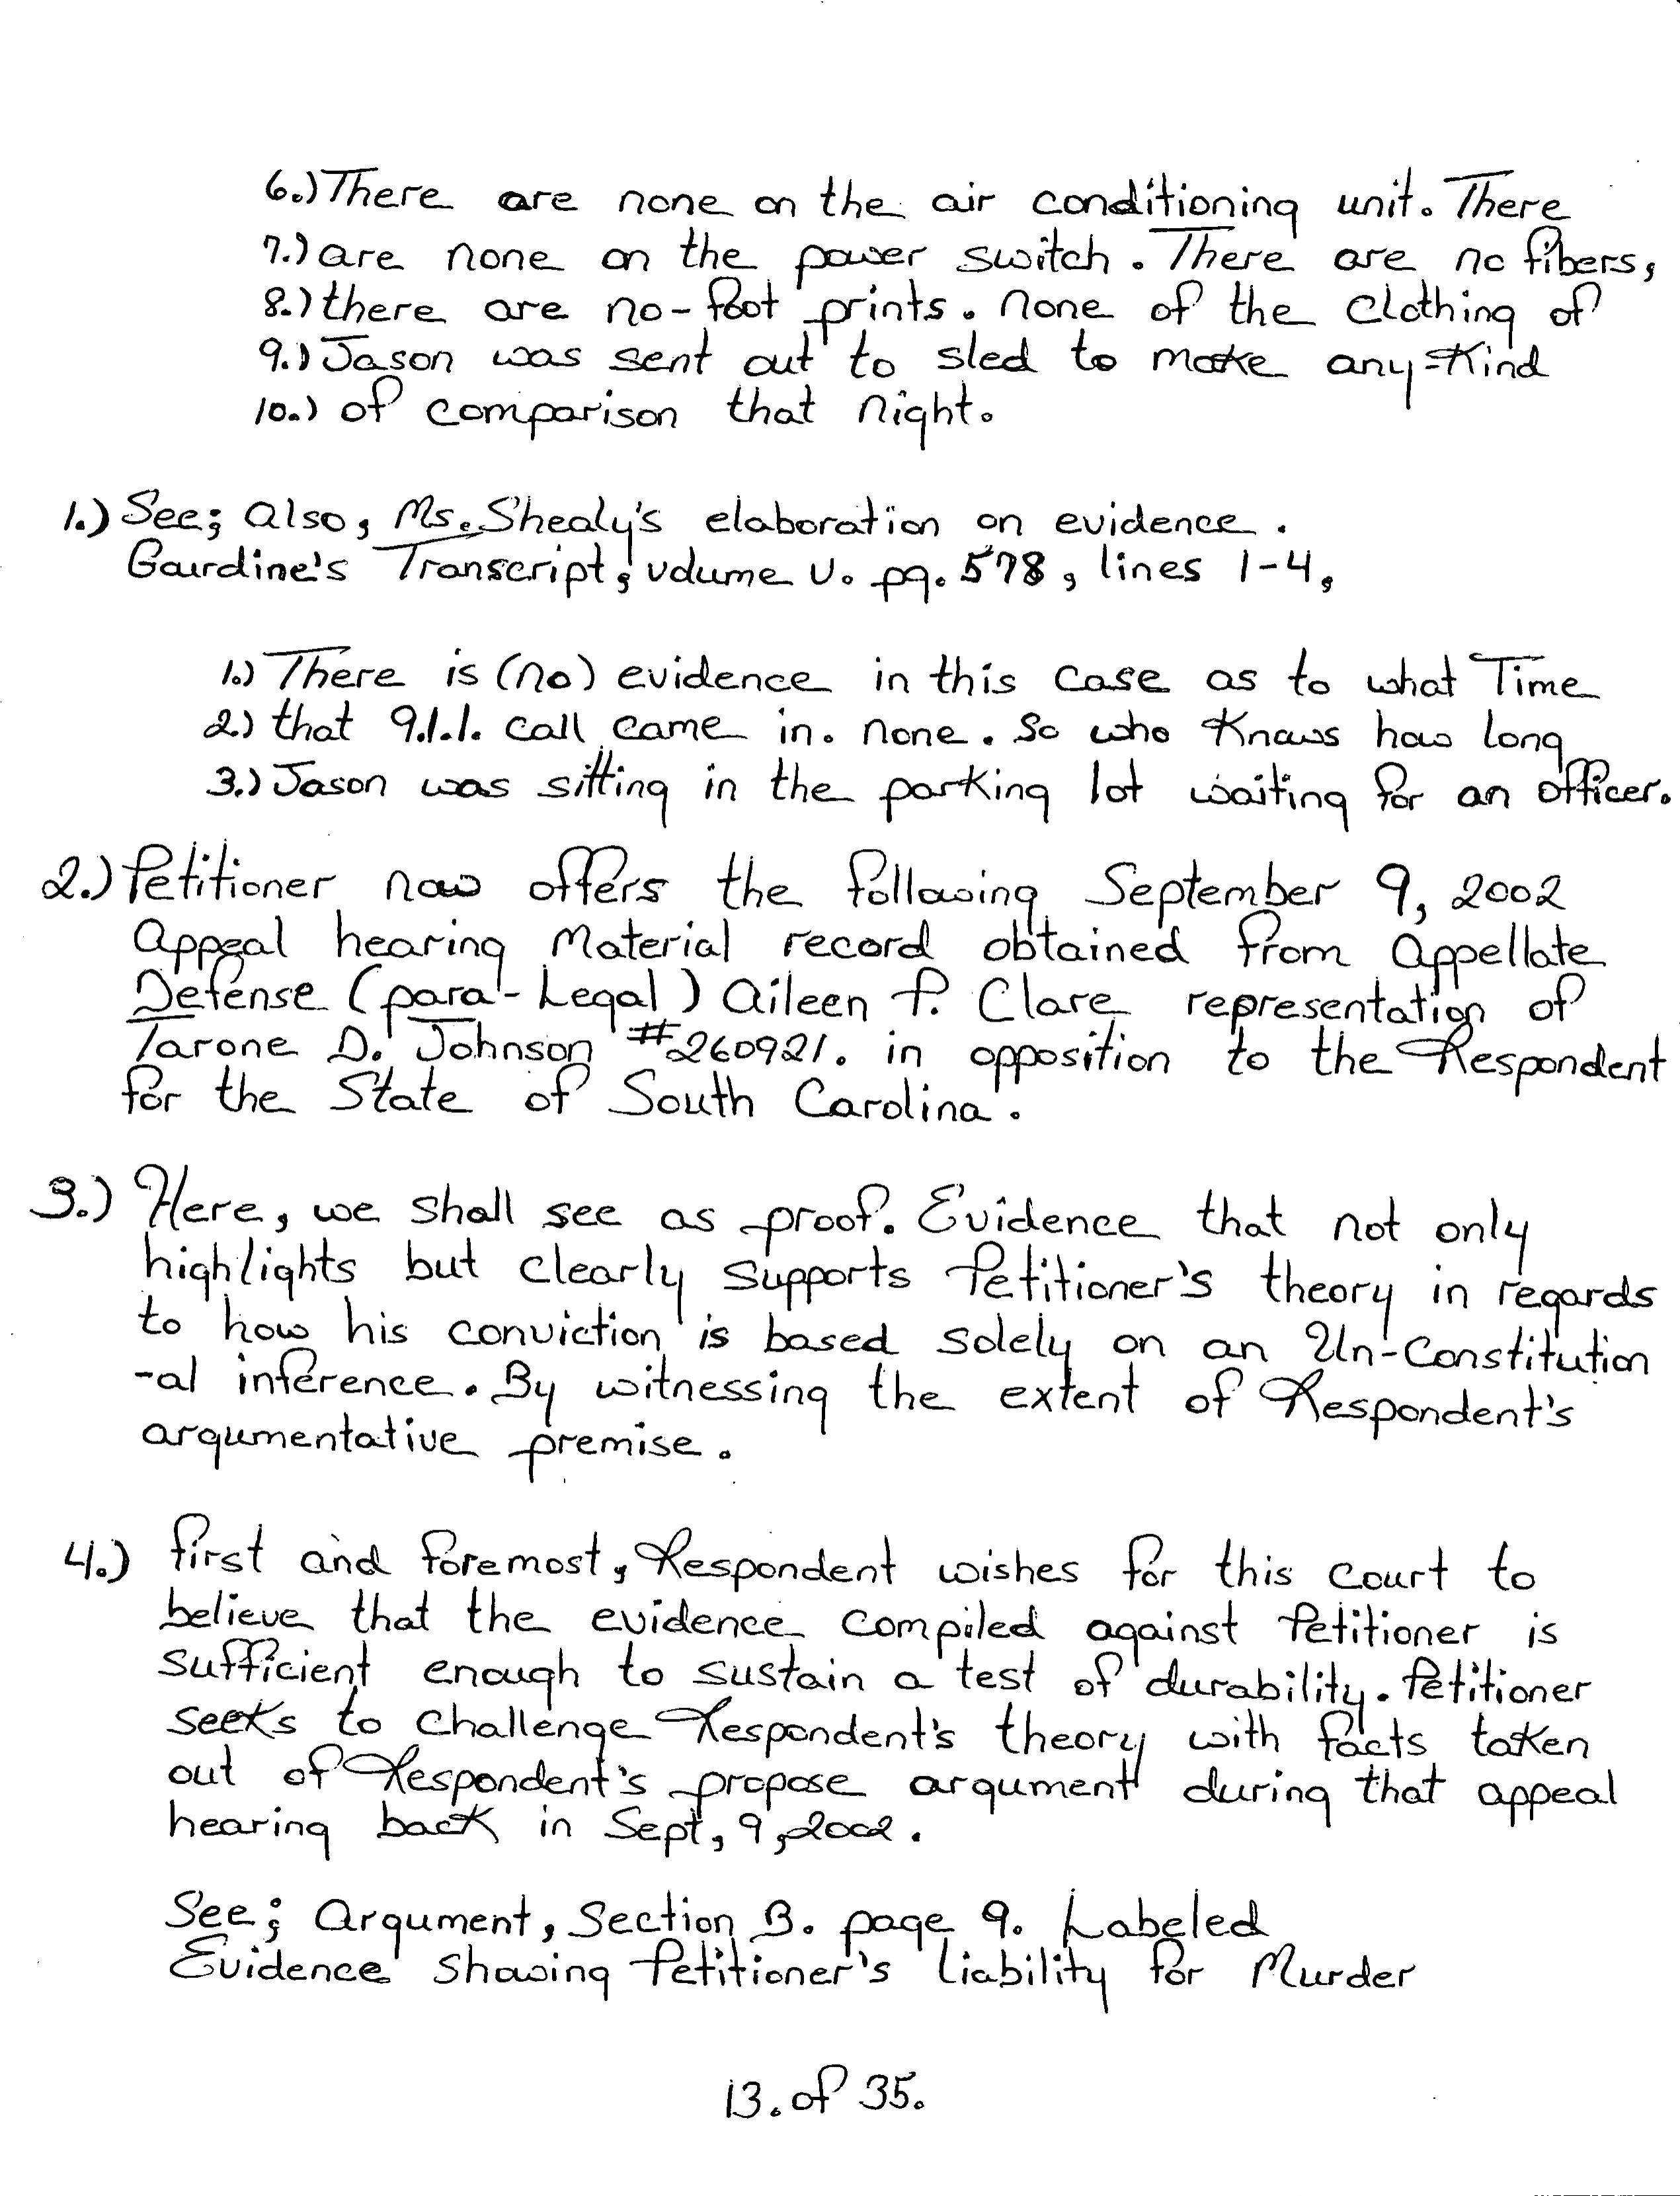 6.) There are none on the air conditioning unit. There
7.) are none on the power switch. There are no fibers,
8.) there are no-foot prints. none of the clothing of
9.) Jason was sent out to sled to make any-Kind
10.) of comparison that night.
1.) See; also, Ms. Shealy's elaboration on evidence.
Gaurdine's Transcript, volume V. pg. 578, lines 1-4,
1.) There is (no) evidence in this case as to what Time
2.) that 9.1.1. call came in. none. So who Knows how long
3.) Jason was sitting in the parking lot waiting for an officer.
2.) Petitioner now offers the following September 9, 2002
Appeal hearing Material record obtained from Appellate
Defense (para-Legal) Aileen P. Clare representation of
Tarone D. Johnson #260921. in opposition to the Respondent
for the State of South Carolina.
3.) Here, we shall see as proof. Evidence that not only
highlights but clearly supports Petitioner's theory in regards
to how his conviction is based solely on an Un-Constitution
-al inference. By witnessing the extent of Respondent's
argumentative premise.
4.) first and foremost, Respondent wishes for this court to
believe that the evidence compiled against Petitioner is
sufficient enough to sustain a test of durability. Petitioner
seeks to challenge Respondent's theory with facts taken
out of Respondent's propose argument during that appeal
hearing back in Sept, 9, 2002.
See; Argument, Section B. page 9. Labeled
Evidence showing Petitioner's liability for Murder
13. of 35.